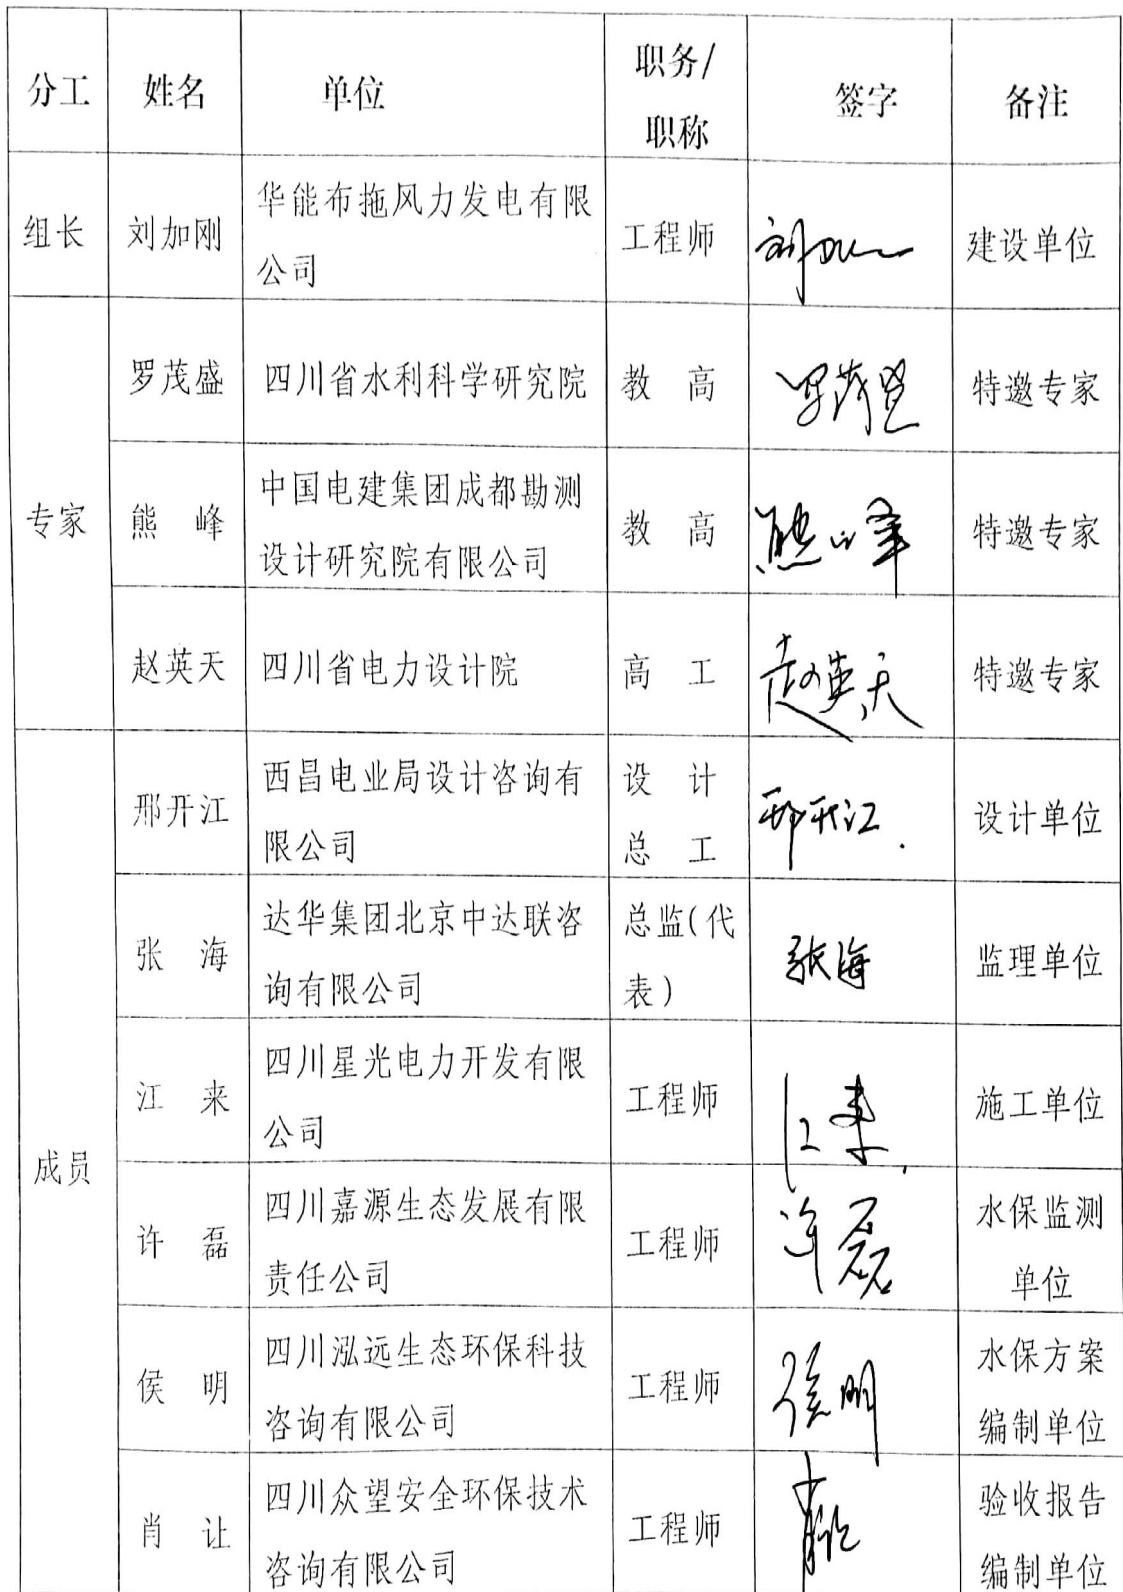 分工 姓名 单位 职务/职称 签字 备注
组长 刘加刚 华能布拖风力发电有限公司 工程师 建设单位
专家
罗茂盛 四川省水利科学研究院 教 高 罗茂盛 特邀专家
熊 峰 中国电建集团成都勘测设计研究院有限公司 教 高 熊峰 特邀专家
赵英天 四川省电力设计院 高 工 赵英天 特邀专家
成员
邢开江 西昌电业局设计咨询有限公司 设 计 总 工 邢开江 设计单位
张 海 达华集团北京中达联咨询有限公司 总监(代表) 张海 监理单位
江 来 四川星光电力开发有限公司 工程师 江来 施工单位
许 磊 四川嘉源生态发展有限责任公司 工程师 许磊 水保监测单位
侯 明 四川泓远生态环保科技咨询有限公司 工程师 侯明 水保方案编制单位
肖 让 四川众望安全环保技术咨询有限公司 工程师 肖让 验收报告编制单位